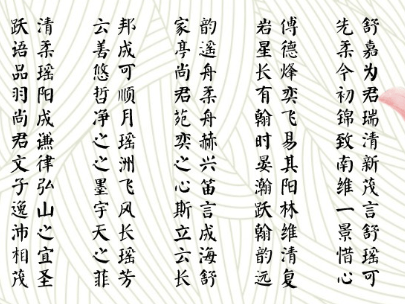 跃清 云邦 家韵 岩傅 先舒
语柔 善成 亭遥 星德 柔嘉
品瑶 悠可 尚舟 长烽 今为
羽阳 哲顺 君柔 有奕 初君
尚成 净月 苑舟 翰飞 锦瑞
君谦 之瑶 奕赫 时易 致清
文律 之洲 之兴 晏其 南新
子弘 墨飞 心笛 瀚阳 维茂
逸山 宇风 斯言 跃林 一言
沛之 天长 立成 翰维 景舒
相宜 之瑶 云海 韵清 惜瑶
茂圣 菲芳 长舒 远复 心可